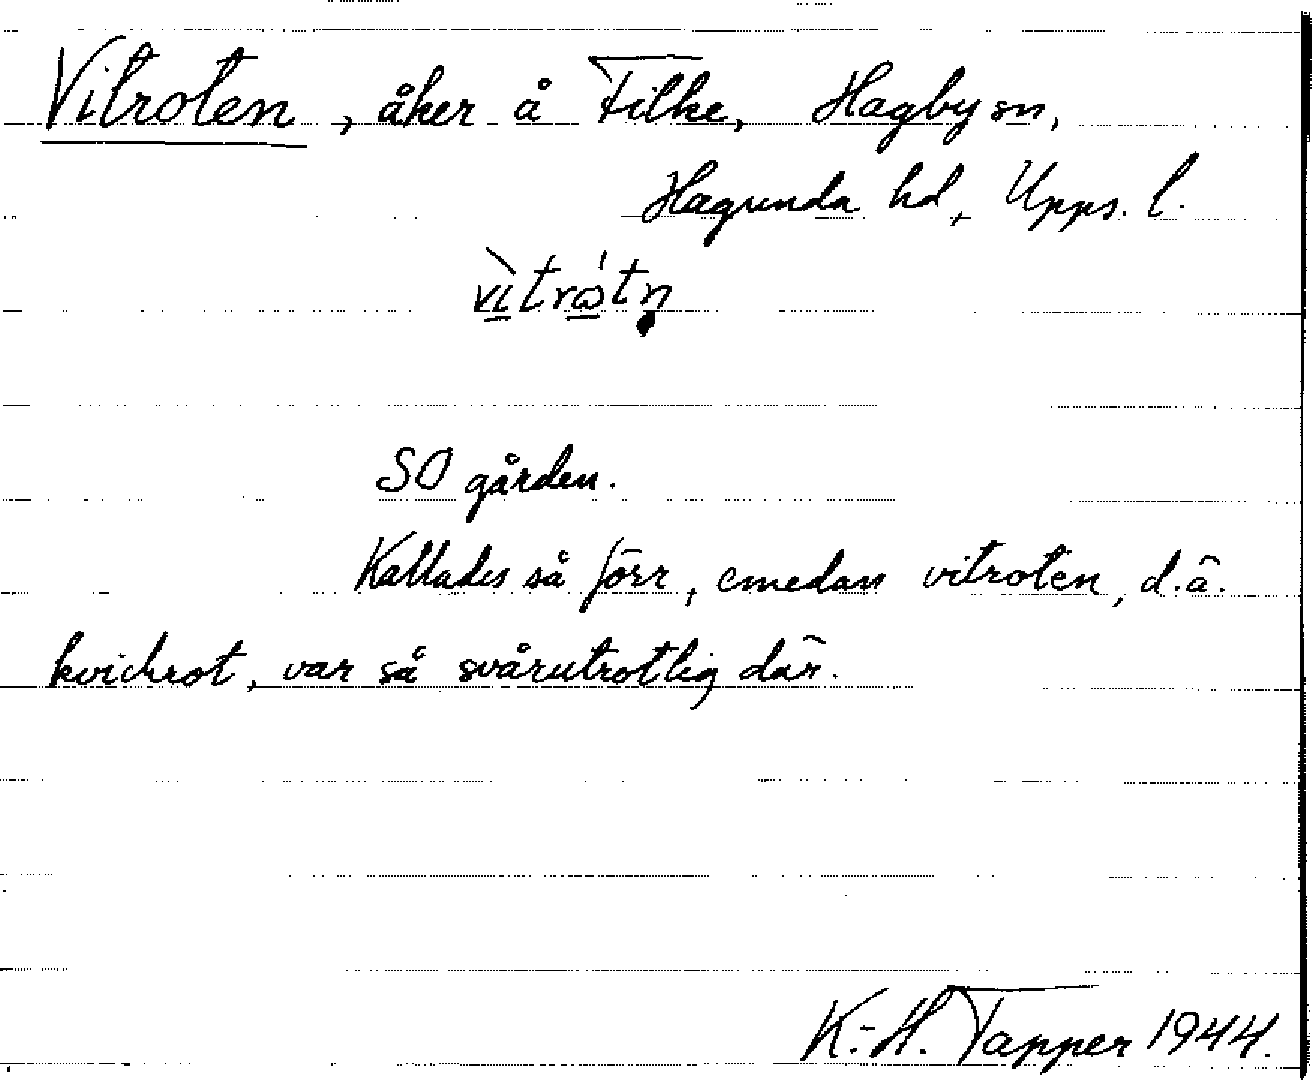 Vitroten, åker å Filke, Hagby sn,
Hagunda hd, Upps. l.
vìtrω̇tn̥
SO gården.
Kallades så förr, emedan vitroten, d.ä.
kvickrot, var så svårutrotlig där.
K.-H. Tapper 1944.